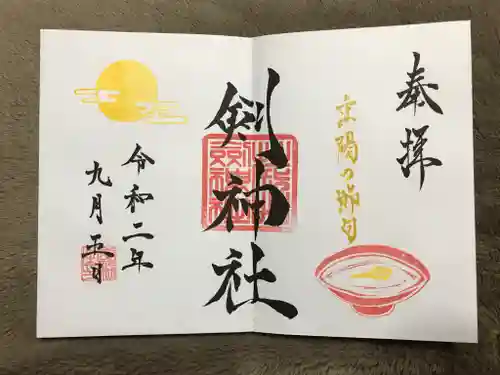 奉拝
重陽の節句
剣神社
令和二年
九月五日